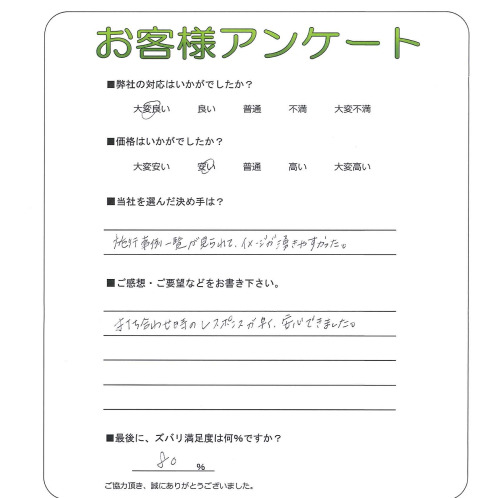 お客様アンケート
■弊社の対応はいかがでしたか？
大変良い 良い 普通 不満 大変不満
■価格はいかがでしたか？
大変安い 安い 普通 高い 大変高い
■当社を選んだ決め手は？
施行事例一覧が見られて、イメージが湧きやすかった。
■ご感想・ご要望などをお書き下さい。
打ち合わせ時のレスポンスが早く、安心できました。
■最後に、ズバリ満足度は何%ですか？
80 %
ご協力頂き、誠にありがとうございました。